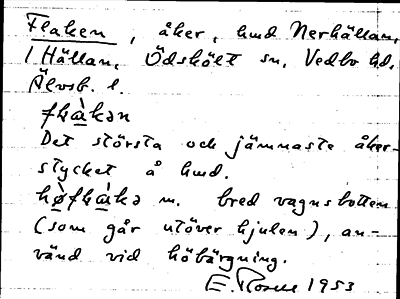 Flaken, åker, hmd Nerhällan,
/ Hällan, Ödskölt sn, Vedbo hd,
Älvsb. l.
Det största och jämnaste åker-
stycket å hmd.
m. bred vagnsbotten
(som går utöver hjulen), an-
vänd vid höbärgning.
E. 1953